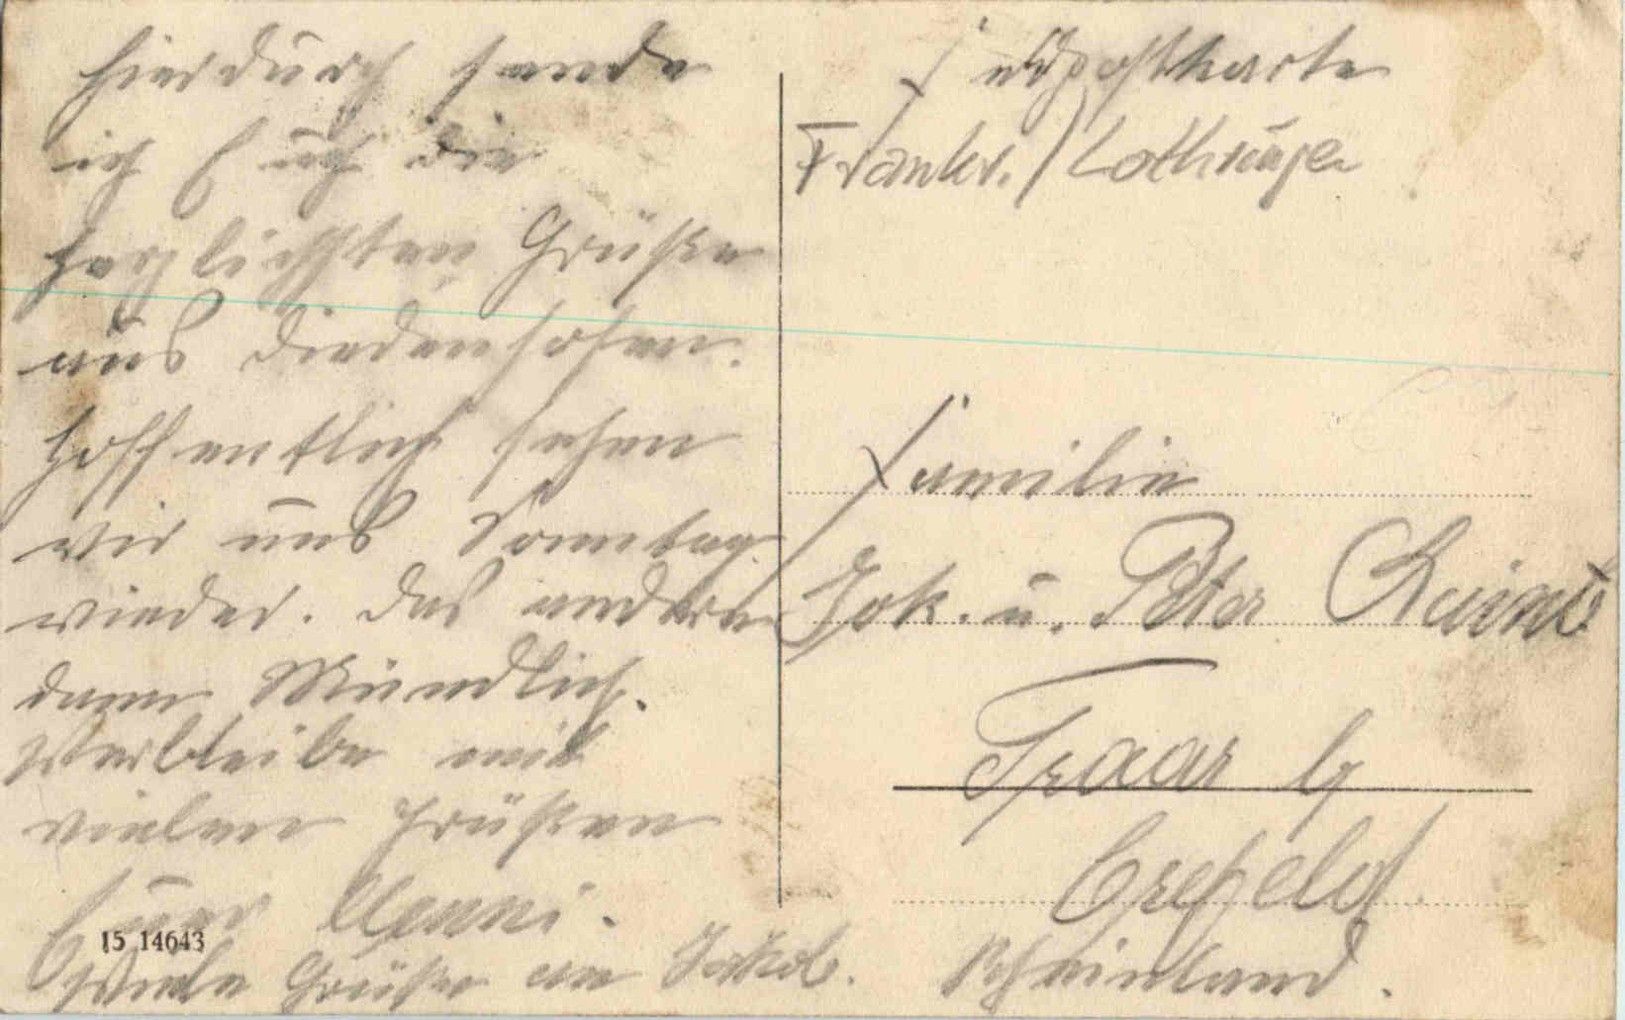 Hierdurch sende
ich Euch die
herzlichsten Grüße
aus Diedenhofen.
Hoffentlich sehen
wir uns Sonntag
wieder. Das andere
dann Mündlich.
Verbleibe mit
vielen Grüßen
Euer
Viele Grüße an Jakob.
15 14643
Feldpostkarte
Frankr./Lothringen
Familie
Jak. u. Peter
Traar b/
Crefeld
Rheinland.